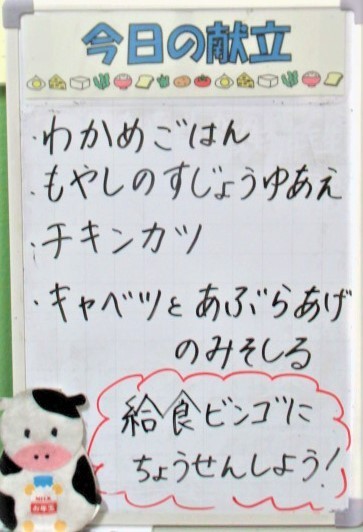 今日の献立
・わかめごはん
・もやしのすじょうゆあえ
・チキンカツ
・キャベツとあぶらあげ
のみそしる
給食ビンゴに
ちょうせんしよう!
MILK